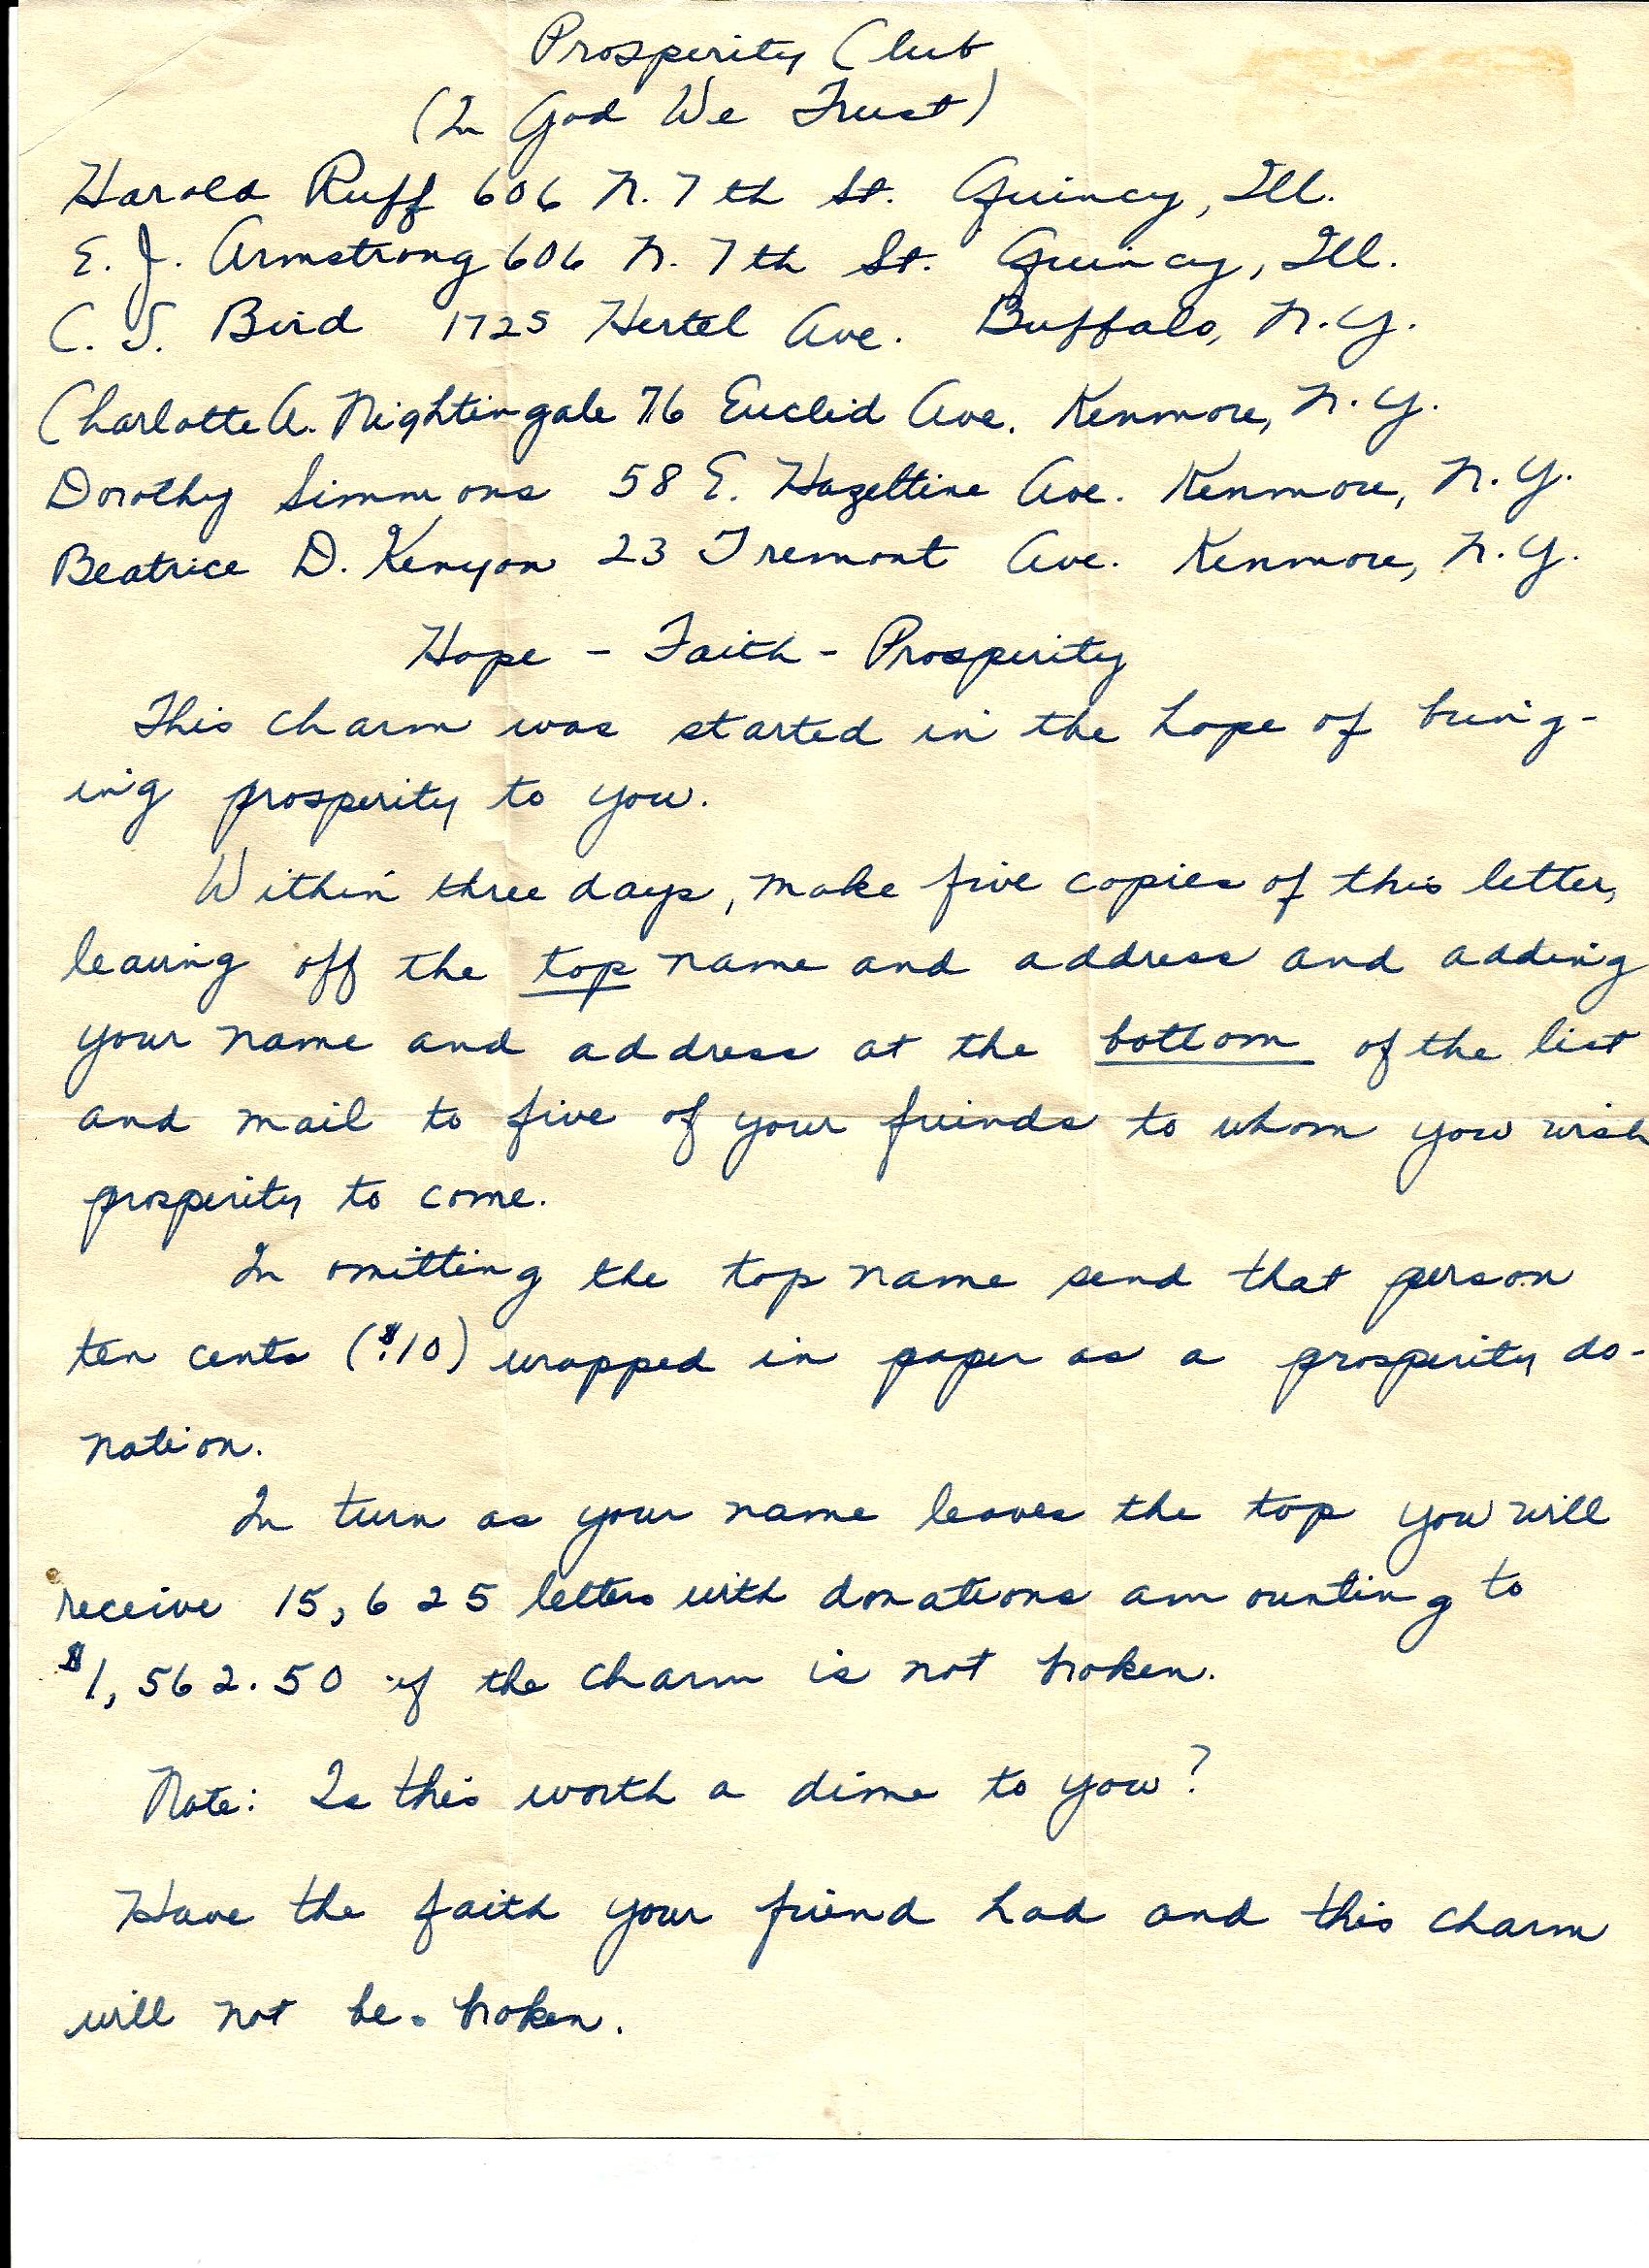 Prosperity Club
(In God We Trust)
Harold Ruff 606 N. 7th St. Quincy, Ill.
E. J. Armstrong 606 N. 7th St. Quincy, Ill.
C. S. Bird 1725 Hertel Ave. Buffalo, N.Y.
Charlotte A. Nightingale 76 Euclid Ave. Kenmore, N.Y.
Dorothy Simmons 58 E. Hazeltine Ave. Kenmore, N.Y.
Beatrice D. Kenyon 23 Tremont Ave. Kenmore, N.Y.
Hope - Faith - Prosperity
This charm was started in the hope of bring-
ing prosperity to you.
Within three days, make five copies of this letter,
leaving off the top name and address and adding
your name and address at the bottom of the list
and mail to five of your friends to whom you wish
prosperity to come.
In omitting the top name send that person
ten cents ($.10) wrapped in paper as a prosperity do-
nation.
In turn as your name leaves the top you will
receive 15,625 letters with donations amounting to
$1,562.50 if the charm is not broken.
Note: Is this worth a dime to you?
Have the faith your friend had and this charm
will not be. broken.